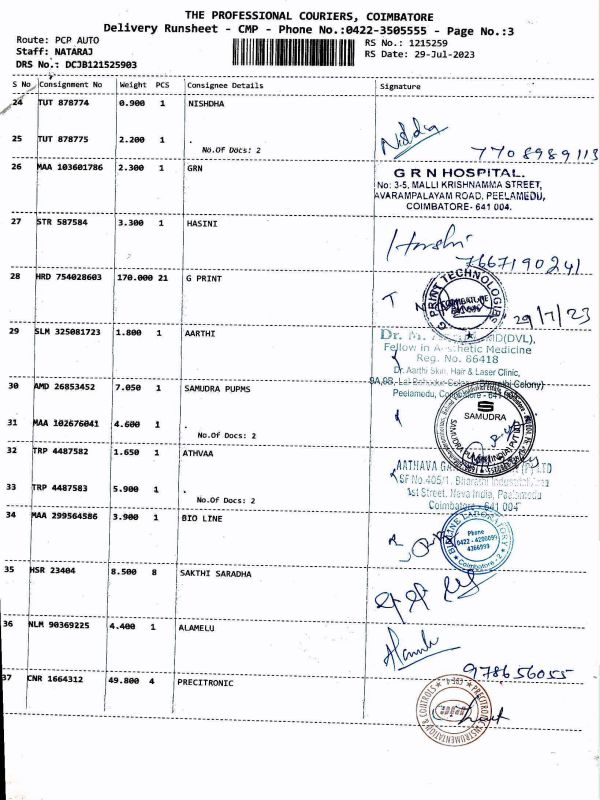 THE PROFESSIONAL COURIERS, COIMBATORE
Delivery Runsheet - CMP - Phone No.:0422-3505555 - Page No.:3
Route: PCP AUTO RS No.: 1215259
Staff: NATARAJ RS Date: 29-Jul-2023
DRS No.: DCJB121525903
S No Consignment No Weight PCS Consignee Details Signature
24 TUT 878774 0.900 1 NISHDHA
25 TUT 878775 2.200 1 .
No.Of Docs: 2
7708989113
26 MAA 103601786 2.300 1 GRN
G R N HOSPITAL.
No: 3-5, MALLI KRISHNAMMA STREET,
AVARAMPALAYAM ROAD, PEELAMEDU,
COIMBATORE- 641 004.
27 STR 587584 3.300 1 HASINI
7667190241
28 HRD 754028603 170.000 21 G PRINT
G PRINT TECHNOLOGIES
29/7/23
29 SLM 325081723 1.800 1 AARTHI
Dr. M. MD(DVL),
Fellow in Aesthetic Medicine
Reg. No. 86418
Dr. Aarthi Skin, Hair & Laser Clinic,
Colony)
Peelamedu, Coimbatore - 641
30 AMD 26853452 7.050 1 SAMUDRA PUPMS
SAMUDRA
31 MAA 102676041 4.600 1 .
No.Of Docs: 2
32 TRP 4487582 1.650 1 ATHVAA
AATHAVA (P) LTD
SF No.405/1, Bharathi Industrial Area
1st Street, Nava India, Peelamedu
Coimbatore - 641 004
33 TRP 4487583 5.900 1 .
No.Of Docs: 2
34 MAA 299564586 3.900 1 BIO LINE
BIOLINE LABORATORY
Phone
0422 - 4290099
4366999
Coimbatore - 2
35 HSR 23404 8.500 8 SAKTHI SARADHA
36 NLM 90369225 4.400 1 ALAMELU
978656055
37 CNR 1664312 49.800 4 PRECITRONIC
PRECITRONIC INSTRUMENTATION & CONTROLS
CBE-4.